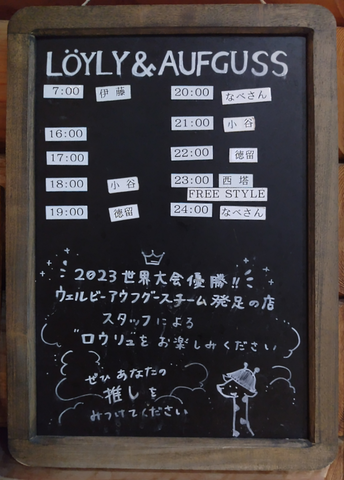 LÖYLY & AUFGUSS
7:00 伊藤
16:00
17:00
18:00 小谷
19:00 徳留
20:00 なべさん
21:00 小谷
22:00 徳留
23:00 西塔
FREE STYLE
24:00 なべさん
2023世界大会優勝!!
ウェルビーアウフグースチーム発足の店
スタッフによる
ロウリュをお楽しみください
ぜひあなたの
推しを
みつけてください